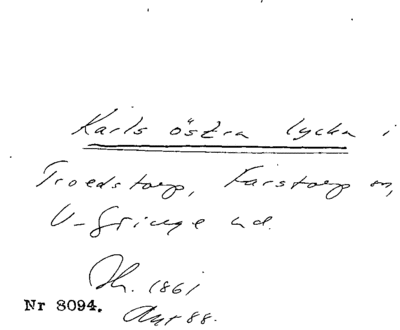 Karls östra lycka i
Troedstorp, Farstorp sn,
V-Göinge hd.
Th. 1861
Nr 8094.
Ant 88.